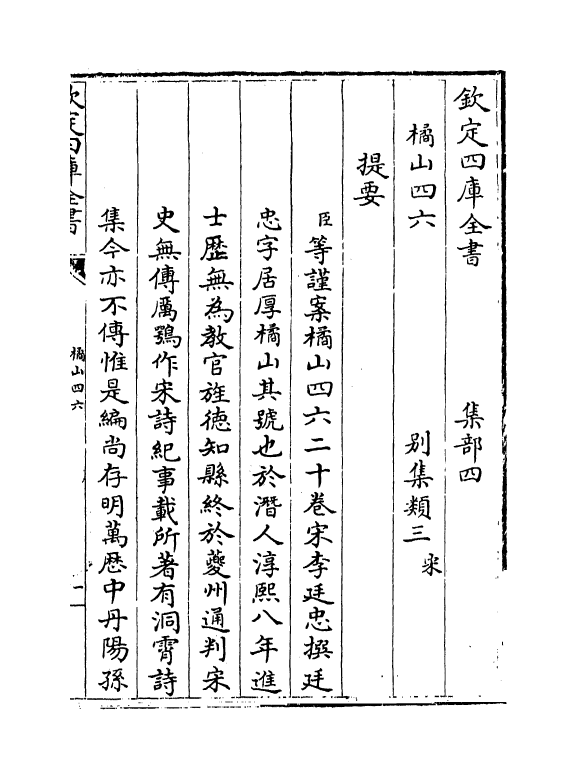 欽定四庫全書　集部四
橘山四六　别集類三宋
提要
臣等謹案橘山四六二十卷宋李廷忠撰廷
忠字居厚橘山其號也於潛人淳熙八年進
士歴無為教官旌徳知縣終於夔州通判宋
史無傳厲鶚作宋詩紀事載所著有洞霄詩
集今亦不傳惟是編尚存明萬厯中丹陽孫
欽定四庫全書
橘山四六
一